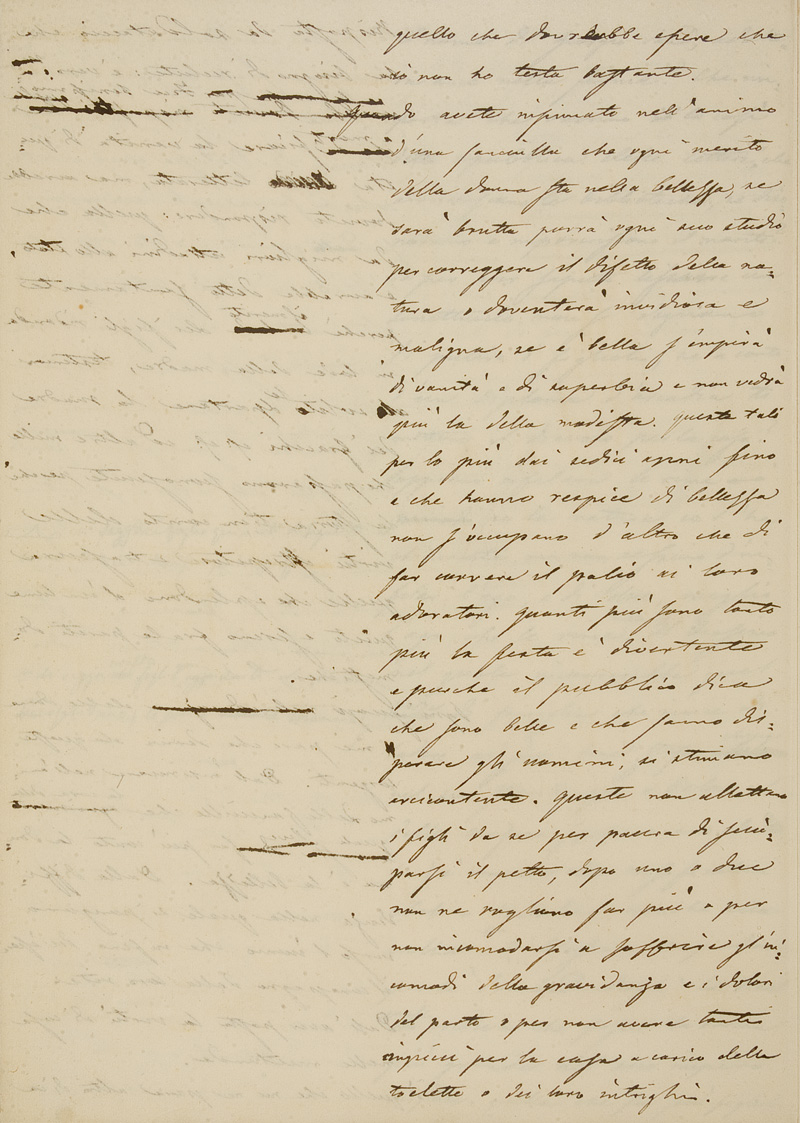 quello che dovrebbe essere che
io non ho testa bastante.
Quando avete inspirato nell'animo
d'una fanciulla che ogni merito
della donna sta nella bellezza, se
sarà brutta porrà ogni suo studio
per correggere il difetto della na=
tura o doventerà invidiosa e
maligna, se è bella s'empirà
di vanità e di superbia e non vedrà
più là della modista. Queste tali
per lo più dai sedici anni fino
a che hanno respice di bellezza
non s'occupano d'altro che di
far correre il palio ai loro
adoratori. Quanti più sono tanto
più la festa è divertente
e purché il pubblico dica
che sono belle e che fanno dis=
perare gli uomini, si stimano
arcicontente. Queste non allattano
i figli da se per paura di sciu=
parsi il petto, dopo uno o due
non ne vogliono far più o per
non incomodarsi a soffrire gl'in=
comodi della gravidanza e i dolori
del parto o per non avere tanti
impicci per la casa a carico della
toelette o dei loro intrighi.